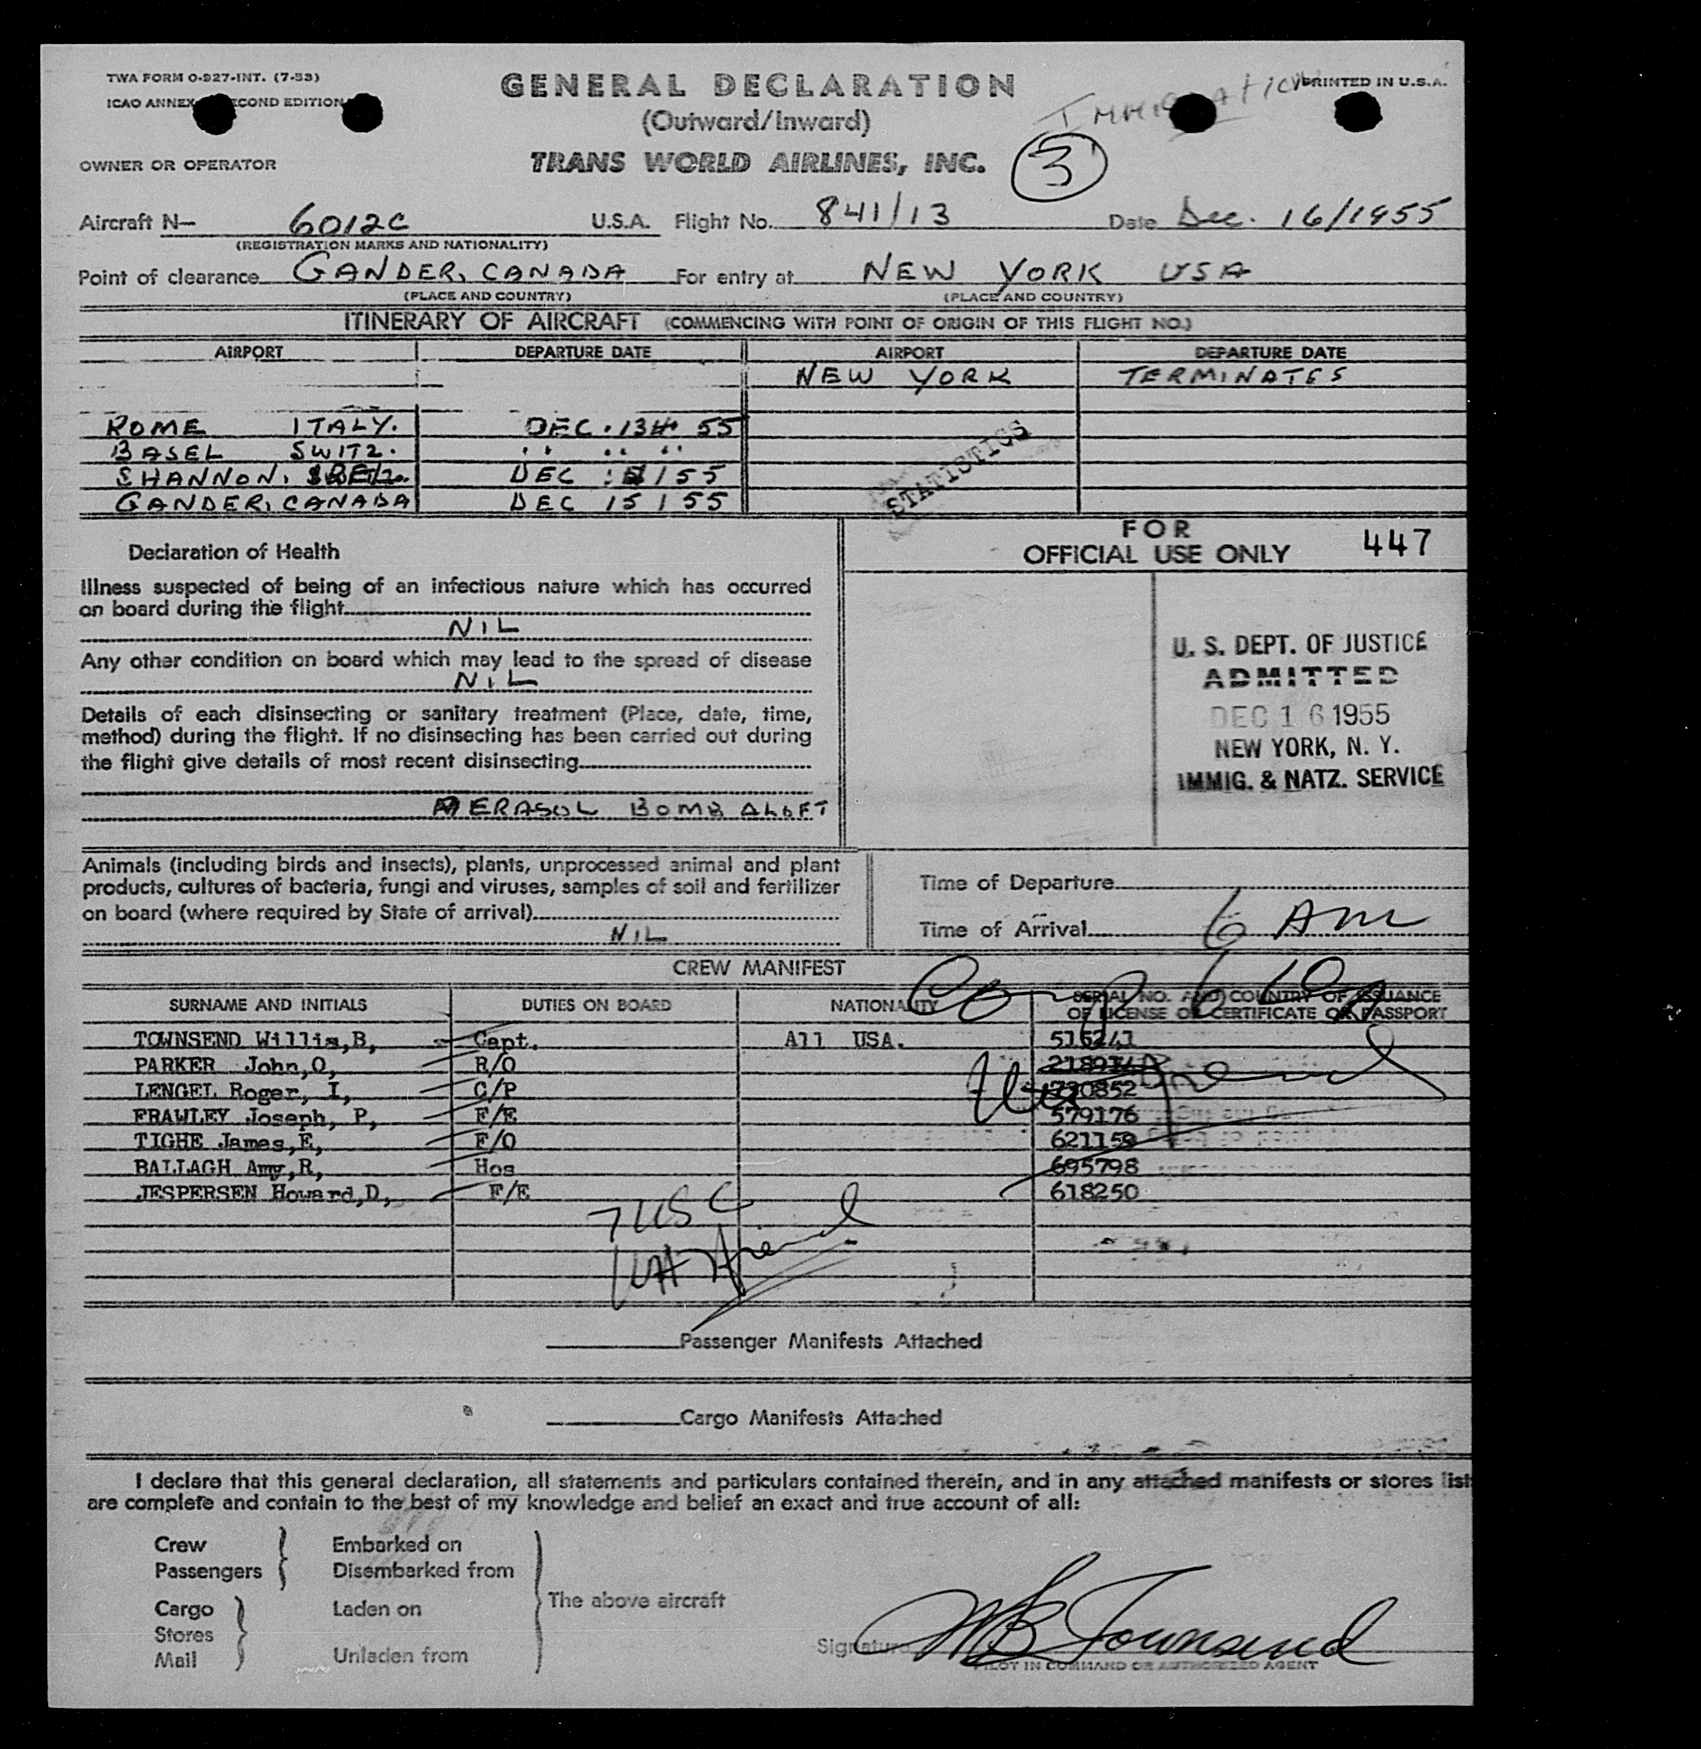 TWA FORM O-927-INT. (7-53)
GENERAL DECLARATION
PRINTED IN U.S.A.
ICAO ANNEX SECOND EDITION
(Outward/Inward)
IMMIGRATION
OWNER OR OPERATOR
TRANS WORLD AIRLINES, INC.
3
Aircraft N- 6012C U.S.A. Flight No. 841/13 Date Dec. 16/1955
(REGISTRATION MARKS AND NATIONALITY)
Point of clearance GANDER, CANADA For entry at NEW YORK USA
(PLACE AND COUNTRY) (PLACE AND COUNTRY)
ITINERARY OF AIRCRAFT (COMMENCING WITH POINT OF ORIGIN OF THIS FLIGHT NO.)
AIRPORT DEPARTURE DATE AIRPORT DEPARTURE DATE
NEW YORK TERMINATES
ROME ITALY. DEC. 55
BASEL SWITZ. " " "
SHANNON, DEC 55
GANDER, CANADA DEC 15 / 55
STATISTICS
FOR
OFFICIAL USE ONLY 447
Declaration of Health
Illness suspected of being of an infectious nature which has occurred
on board during the flight
NIL
Any other condition on board which may lead to the spread of disease
NIL
Details of each disinsecting or sanitary treatment (Place, date, time,
method) during the flight. If no disinsecting has been carried out during
the flight give details of most recent disinsecting
AERASOL BOMB ALOFT
U. S. DEPT. OF JUSTICE
ADMITTED
DEC 16 1955
NEW YORK, N. Y.
IMMIG. & NATZ. SERVICE
Animals (including birds and insects), plants, unprocessed animal and plant
products, cultures of bacteria, fungi and viruses, samples of soil and fertilizer
on board (where required by State of arrival)
NIL
Time of Departure
Time of Arrival 6 AM
CREW MANIFEST
SURNAME AND INITIALS DUTIES ON BOARD NATIONALITY SERIAL NO. AND COUNTRY OF ISSUANCE
OF LICENSE OR CERTIFICATE OR PASSPORT
TOWNSEND Willis,B, Capt. All USA. 516241
PARKER John,O, R/O
LENGEL Roger, I, C/P
FRAWLEY Joseph, P, F/E 579176
TIGHE James,E, F/O 621159
BALLAGH Amy,R, Hos 695798
JESPERSEN Howard,D, F/E 618250
7 USC
Passenger Manifests Attached
Cargo Manifests Attached
I declare that this general declaration, all statements and particulars contained therein, and in any attached manifests or stores list
are complete and contain to the best of my knowledge and belief an exact and true account of all:
Crew Embarked on
Passengers Disembarked from
The above aircraft
Cargo Laden on
Stores
Mail Unladen from
Signature WB Townsend
PILOT IN COMMAND OR AUTHORIZED AGENT